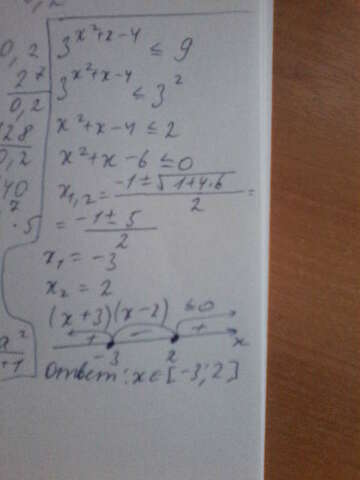 0,2
27
0,2
128
0,2
40
7
· 5
a²
+1
3^{x²+x-4} ≤ 9
3^{x²+x-4} ≤ 3²
x²+x-4 ≤ 2
x²+x-6 ≤ 0
x₁,₂ = \frac{-1±√(1+4·6)}{2} =
= \frac{-1±5}{2}
x₁ = -3
x₂ = 2
(x+3)(x-2) ≤ 0
+ - +
-3 2 x
Ответ: x ∈ [-3; 2]